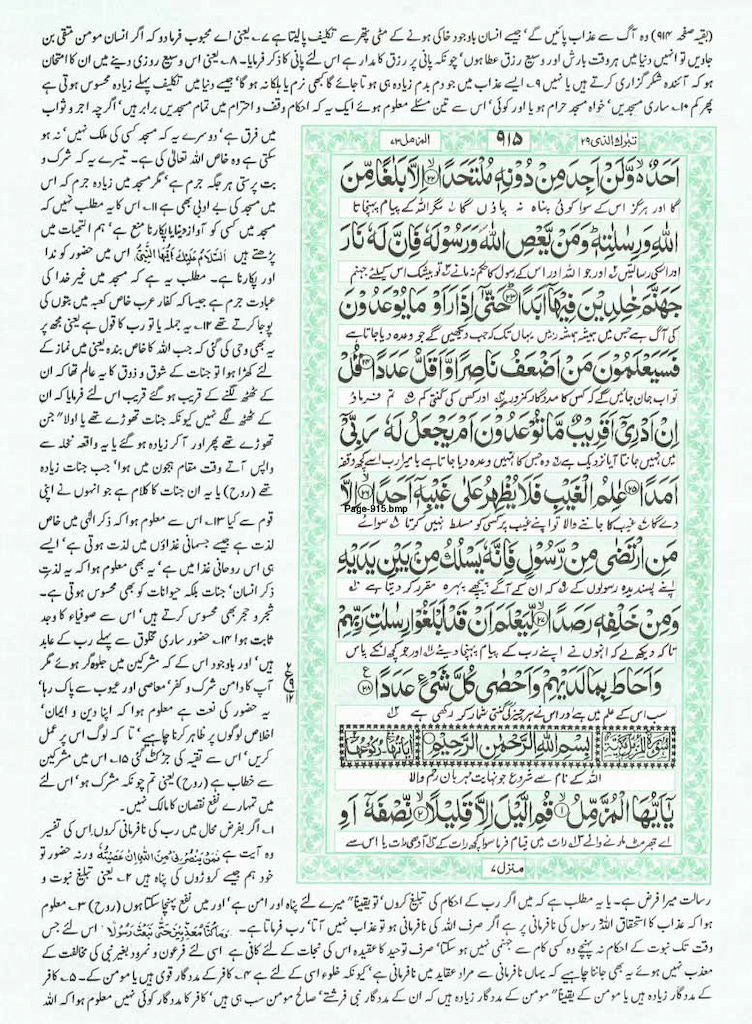 (بقیہ صفحہ ۹۱۴) وہ آگ سے عذاب پائیں گے، جیسے انسان باوجود خاکی ہونے کے مٹی پتھر سے تکلیف پا لیتا ہے ۷۔ یعنی اے محبوب فرما دو کہ اگر انسان مومن متقی بن
جاویں تو انہیں دنیا میں ہر وقت بارش اور وسیع رزق عطا ہوں، چونکہ پانی پر رزق کا مدار ہے اس لئے پانی کا ذکر فرمایا۔ ۸۔ یعنی اس وسیع روزی دینے میں ان کا امتحان
ہو کہ آئندہ شکر گزاری کرتے ہیں یا نہیں ۹۔ ایسے عذاب میں جو دم بدم زیادہ ہی ہوتا جائے گا کبھی نرم یا ہلکا نہ ہو گا، جیسے دنیا میں تکلیف پہلے زیادہ محسوس ہوتی ہے
پھر کم ۱۰۔ ساری مسجدیں، خواہ مسجد حرام ہو یا اور کوئی، اس سے تین مسئلے معلوم ہوئے ایک یہ کہ احکام وقف و احترام میں تمام مسجدیں برابر ہیں، اگرچہ اجر و ثواب
میں فرق ہے، دوسرے یہ کہ مسجد کسی کی ملک نہیں، نہ ہو
سکتی ہے وہ خاص اللہ تعالیٰ کی ہے۔ تیسرے یہ کہ شرک و
بت پرستی ہر جگہ جرم ہے، مگر مسجد میں زیادہ جرم کہ اس
میں مسجد کی بے ادبی بھی ہے ۱۱۔ اس کا یہ مطلب نہیں کہ
مسجد میں کسی کو آواز دینا یا پکارنا منع ہے، ہم التحیات میں
پڑھتے ہیں اَلسَّلَامُ عَلَيْكَ اَيُّهَا النَّبِيُّ، اس میں حضور کو ندا
اور پکارنا ہے۔ مطلب یہ ہے کہ مسجد میں غیر خدا کی
عبادت جرم ہے جیسا کہ کفار عرب خاص کعبہ میں بتوں کی
پوجا کرتے تھے ۱۲۔ یہ جملہ یا تو رب کا قول ہے یعنی مجھ پر
یہ بھی وحی کی گئی کہ جب اللہ کا خاص بندہ یعنی میں نماز کے
لئے کھڑا ہوا تو جنات کے شوق و ذوق کا یہ عالم تھا کہ ان
کے ٹھٹھ لگنے کے قریب ہو گئے قریب اس لئے فرمایا کہ ان
کے ٹھٹھ لگے نہیں کیونکہ جنات تھوڑے تھے یا اولاً جن
تھوڑے تھے پھر اور آ کر زیادہ ہو گئے یا یہ واقعہ نخلہ سے
واپس آتے وقت مقام حجون میں ہوا، جب جنات زیادہ
تھے (روح) یا یہ ان جنات کا کلام ہے جو انہوں نے اپنی
قوم سے کیا ۱۳۔ اس سے معلوم ہوا کہ ذکر الٰہی میں خاص
لذت ہے جیسے جسمانی غذاؤں میں لذت ہوتی ہے، ایسے
ہی اس روحانی غذا میں ہے، یہ بھی معلوم ہوا کہ یہ لذتِ
ذکر انسان، جنات بلکہ حیوانات کو بھی محسوس ہوتی ہے۔
شجر و حجر بھی محسوس کرتے ہیں، اس سے صوفیاء کا وجد
ثابت ہوا ۱۴۔ حضور ساری مخلوق سے پہلے رب کے عابد
ہیں، اور باوجود اس کے کہ مشرکین میں جلوہ گر ہوئے مگر
آپ کا دامن شرک و کفر، معاصی اور عیوب سے پاک رہا،
یہ حضور کی نعت ہے معلوم ہوا کہ اپنا دین و ایمان،
اخلاص لوگوں پر ظاہر کرنا چاہیے، تا کہ لوگ اس پر عمل
کریں، اس سے تقیہ کی جڑ کٹ گئی ۱۵۔ اس میں مشرکین
سے خطاب ہے (روح) یعنی تم چونکہ مشرک ہو، اس لئے
میں تمہارے نفع نقصان کا مالک نہیں۔
۱۔ اگر بفرض محال میں رب کی نافرمانی کروں اس کی تفسیر
وہ آیت ہے فَمَنْ يَّنْصُرُنِيْ مِنَ اللّٰهِ اِنْ عَصَيْتُهٗ ورنہ حضور تو
خود ہم جیسے کروڑوں کی پناہ ہیں ۲۔ یعنی تبلیغ نبوت و
تبٰرک الذی ۲۹
۹۱۵
المزمل ۷۳
اَحَدٌ ۙ وَّلَنْ اَجِدَ مِنْ دُوْنِهٖ مُلْتَحَدًا ﴿۲۲﴾ اِلَّا بَلٰغًا مِّنَ
گا اور ہرگز اس کے سوا کوئی پناہ نہ پاؤں گا مگر اللہ کے پیام پہنچاتا
اللّٰهِ وَرِسٰلٰتِهٖ ؕ وَمَنْ يَّعْصِ اللّٰهَ وَرَسُوْلَهٗ فَاِنَّ لَهٗ نَارَ
اور اسکی رسالتیں اور جو اللہ اور اس کے رسول کا حکم نہ مانے تو بیشک اس کیلئے جہنم
جَهَنَّمَ خٰلِدِيْنَ فِيْهَاۤ اَبَدًا ﴿۲۳﴾ حَتّٰۤى اِذَا رَاَوْا مَا يُوْعَدُوْنَ
کی آگ ہے جس میں ہمیشہ ہمیشہ رہیں یہاں تک کہ جب دیکھیں گے جو وعدہ دیا جاتا ہے
فَسَيَعْلَمُوْنَ مَنْ اَضْعَفُ نَاصِرًا وَّاَقَلُّ عَدَدًا ﴿۲۴﴾ قُلْ
تو اب جان جائیں گے کہ کس کا مددگار کمزور اور کس کی گنتی کم تم فرماؤ
اِنْ اَدْرِيْۤ اَقَرِيْبٌ مَّا تُوْعَدُوْنَ اَمْ يَجْعَلُ لَهٗ رَبِّيْۤ
میں نہیں جانتا آیا نزدیک ہے وہ جس کا تمہیں وعدہ دیا جاتا ہے یا میرا رب اسے کچھ وقفہ
اَمَدًا ﴿۲۵﴾ عٰلِمُ الْغَيْبِ فَلَا يُظْهِرُ عَلٰى غَيْبِهٖۤ اَحَدًا ﴿۲۶﴾ اِلَّا
Page-915.bmp
دے گا غیب کا جاننے والا تو اپنے غیب پر کسی کو مسلط نہیں کرتا سوائے
مَنِ ارْتَضٰى مِنْ رَّسُوْلٍ فَاِنَّهٗ يَسْلُكُ مِنْۢ بَيْنِ يَدَيْهِ
اپنے پسندیدہ رسولوں کے کہ ان کے آگے پیچھے پہرہ مقرر کر دیتا ہے
وَمِنْ خَلْفِهٖ رَصَدًا ﴿۲۷﴾ لِّيَعْلَمَ اَنْ قَدْ اَبْلَغُوْا رِسٰلٰتِ رَبِّهِمْ
تا کہ دیکھ لے کہ انہوں نے اپنے رب کے پیام پہنچا دیئے اور جو کچھ انکے پاس
وَاَحَاطَ بِمَا لَدَيْهِمْ وَاَحْصٰى كُلَّ شَيْءٍ عَدَدًا ﴿۲۸﴾
سب اس کے علم میں ہے اور اس نے ہر چیز کی گنتی شمار کر رکھی ہے
سُوْرَةُ الْمُزَّمِّلِ مَكِّيَّةٌ بِسْمِ اللّٰهِ الرَّحْمٰنِ الرَّحِيْمِ اٰيَاتُهَا رُكُوْعَاتُهَا
اللہ کے نام سے شروع جو نہایت مہربان رحم والا
يٰۤاَيُّهَا الْمُزَّمِّلُ ﴿۱﴾ قُمِ الَّيْلَ اِلَّا قَلِيْلًا ﴿۲﴾ نِّصْفَهٗۤ اَوِ
اے جھرمٹ مارنے والے رات میں قیام فرما سوا کچھ رات کے آدھی رات یا اس سے
منزل ۷
رسالت میرا فرض ہے۔ یا یہ مطلب ہے کہ میں اگر رب کے احکام کی تبلیغ کروں، تو یقیناً میرے لئے پناہ اور امن ہے، اور میں نفع پہنچا سکتا ہوں (روح) ۳۔ معلوم
ہوا کہ عذاب کا استحقاق اللہ رسول کی نافرمانی پر ہے اگر صرف اللہ کی نافرمانی ہو تو عذاب نہیں آتا، رب فرماتا ہے۔ وَمَا كُنَّا مُعَذِّبِيْنَ حَتّٰى نَبْعَثَ رَسُوْلًا، اس لئے جس
وقت تک نبوت کے احکام نہ پہنچے وہ کسی کام سے جہنمی نہیں ہو سکتا، صرف توحید کا عقیدہ اس کی نجات کے لئے کافی ہے اسی لئے فرعون و نمرود بغیر نبی کی مخالفت کے
معذب نہیں ہوئے یہ بھی جاننا چاہیے کہ یہاں نافرمانی سے مراد عقاید میں نافرمانی ہے، کیونکہ خلود اسی کے لئے ہے ۴۔ کافر کے مددگار قوی ہیں یا مومن کے۔ ۵۔ کافر کے
مددگار زیادہ ہیں یا مومن کے یقیناً مومن کے مددگار زیادہ ہیں کہ ان کے مددگار نبی فرشتے، صالح مومن سب ہی ہیں، کافر کا مددگار کوئی نہیں معلوم ہوا کہ اللہ